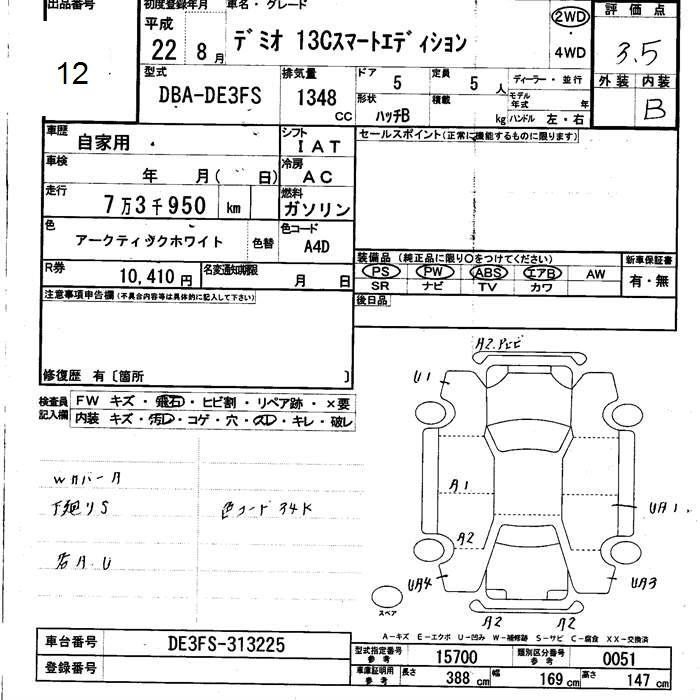 出品番号
12
初度登録年月
平成
22 8月
車名・グレード
デミオ 13Cスマートエディション
2WD
4WD
評価点
3.5
外装 内装
B
型式
DBA-DE3FS
排気量
1348
cc
ドア
5
定員
5人
ディーラー・並行
形状
ハッチB
積載
kg
モデル年式 年
ハンドル 左・右
車歴
自家用
シフト
IAT
セールスポイント(正常に機能するものに限ります)
車検
年 月( 日)
冷房
AC
走行
7万3千950 km
燃料
ガソリン
色
アークティックホワイト
色替
色コード
A4D
R券
10,410円
名変通知期限
月 日
装備品(純正品に限り○をつけてください)
PS PW ABS エアB AW
SR ナビ TV カワ
新車保証書
有・無
後日品
注意事項申告欄(不具合内容等は具体的に記入して下さい)
修復歴 有〔箇所 〕
検査員記入欄
FW キズ・飛石・ヒビ割・リペア跡・×要
内装 キズ・汚レ・コゲ・穴・スレ・キレ・破レ
WカバーA
下廻りS
色コード 34K
A2
U1
A1
UA1
A2
UA4
UA3
A2
A2
スペア
A-キズ E-エクボ U-凹み W-補修跡 S-サビ C-腐食 XX-交換済
車台番号
DE3FS-313225
登録番号
型式指定番号 参考
15700
類別区分番号 参考
0051
車庫証明用 参考
長さ 388 cm
幅 169 cm
高さ 147 cm